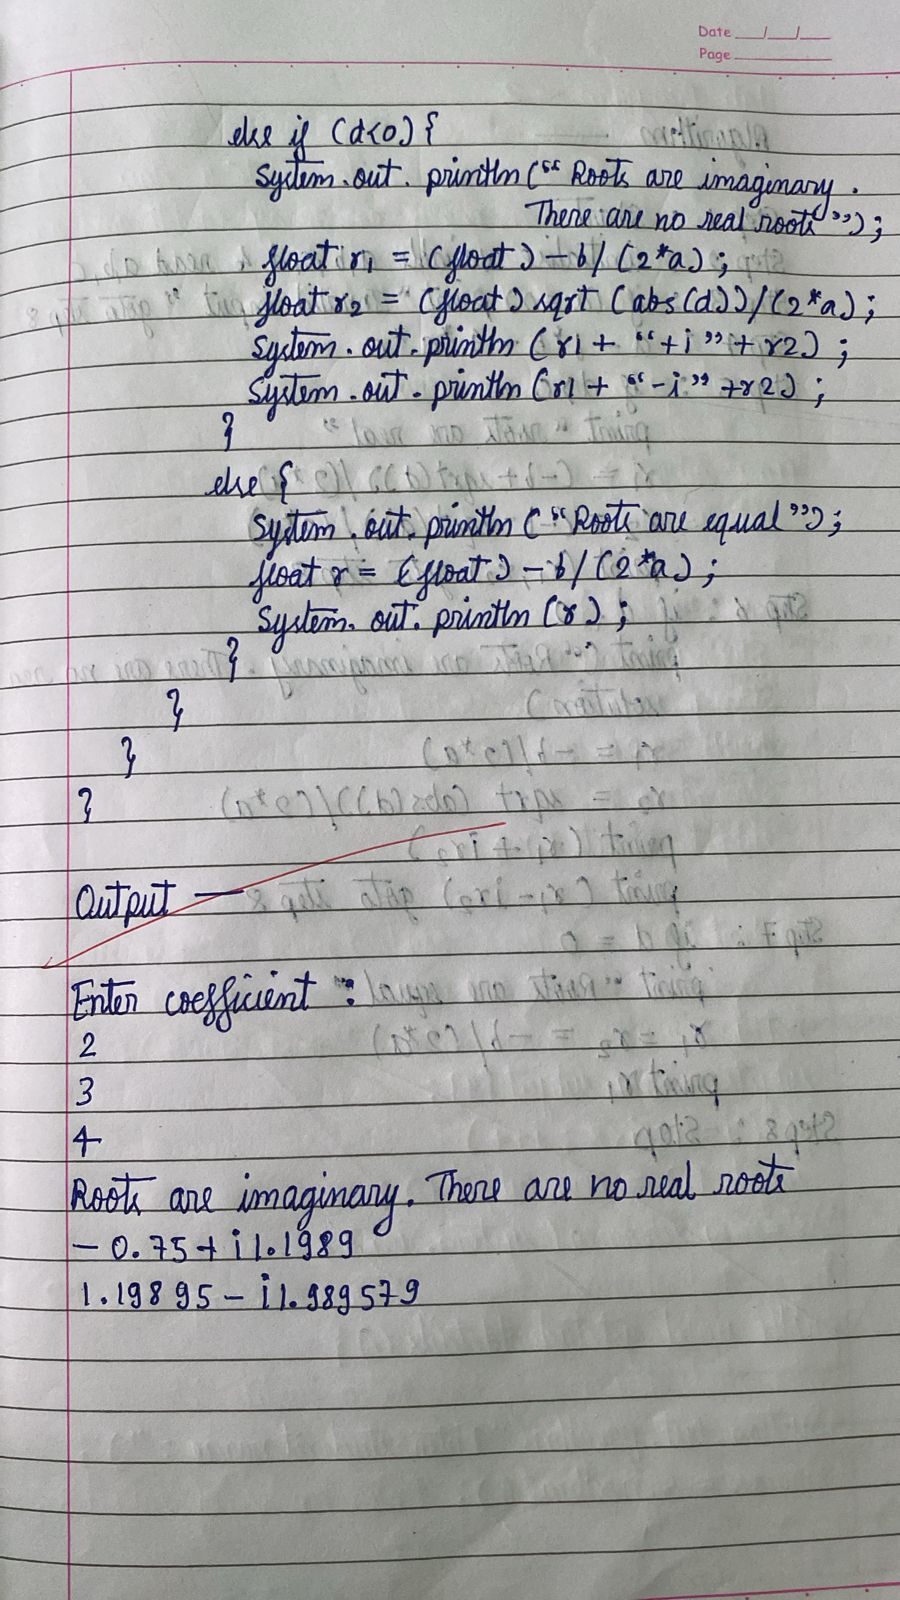 Date __/__/__
Page ______
else if (d<0) {
System.out.println("Roots are imaginary.
There are no real roots");
float r1 = (float) -b/(2*a);
float r2 = (float) sqrt (abs(d))/(2*a);
System.out.println (r1 + "+i" + r2);
System.out.println (r1 + "-i" +r2);
}
else {
System.out.println ("Roots are equal");
float r = (float) -b/(2*a);
System.out.println (r);
}
}
}
}
Output —
Enter coefficient :
2
3
4
Roots are imaginary. There are no real roots
-0.75+i1.1989
1.19895-i1.989579